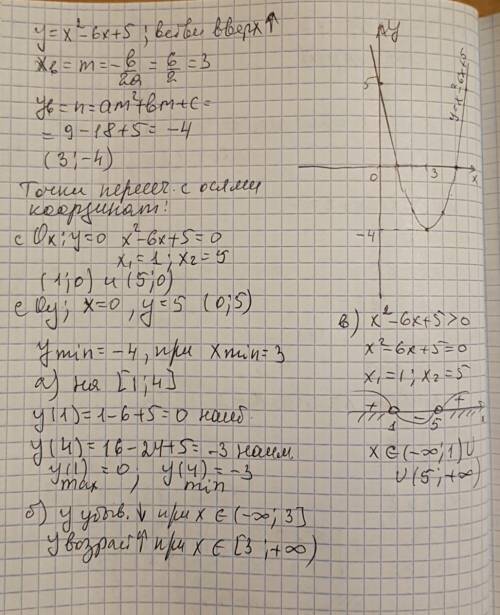 y=x²-6x+5; ветви вверх↑
xв=m=-в/2a=6/2=3
yв=n=am²+вm+c=
=9-18+5=-4
(3;-4)
Точки пересеч. с осями
координат:
с Ox; y=0 x²-6x+5=0
x₁=1; x₂=5
(1;0) и (5;0)
с Oy; x=0, y=5 (0;5)
ymin=-4, при xmin=3
а) на [1;4]
y(1)=1-6+5=0 наиб.
y(4)=16-24+5=-3 наим.
y(1)=0; y(4)=-3
max min
б) y убыв.↓ при x∈(-∞;3]
y возраст↑ при x∈[3;+∞)
y
5
y=x²-6x+5
0
3
x
-4
в) x²-6x+5>0
x²-6x+5=0
x₁=1; x₂=5
+ - +
1 5 x
x∈(-∞;1)∪
∪(5;+∞)